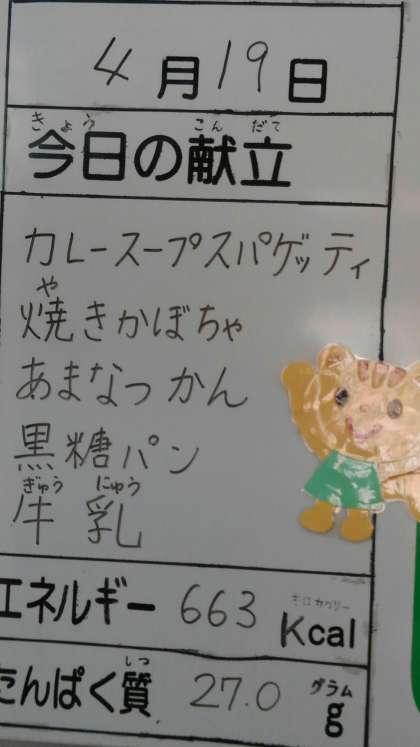 4月19日
きょう こんだて
今日の献立
カレースープスパゲッティ
や
焼きかぼちゃ
あまなつかん
黒糖パン
ぎゅう にゅう
牛乳
キロカロリー
エネルギー 663 Kcal
しつ グラム
たんぱく質 27.0 g